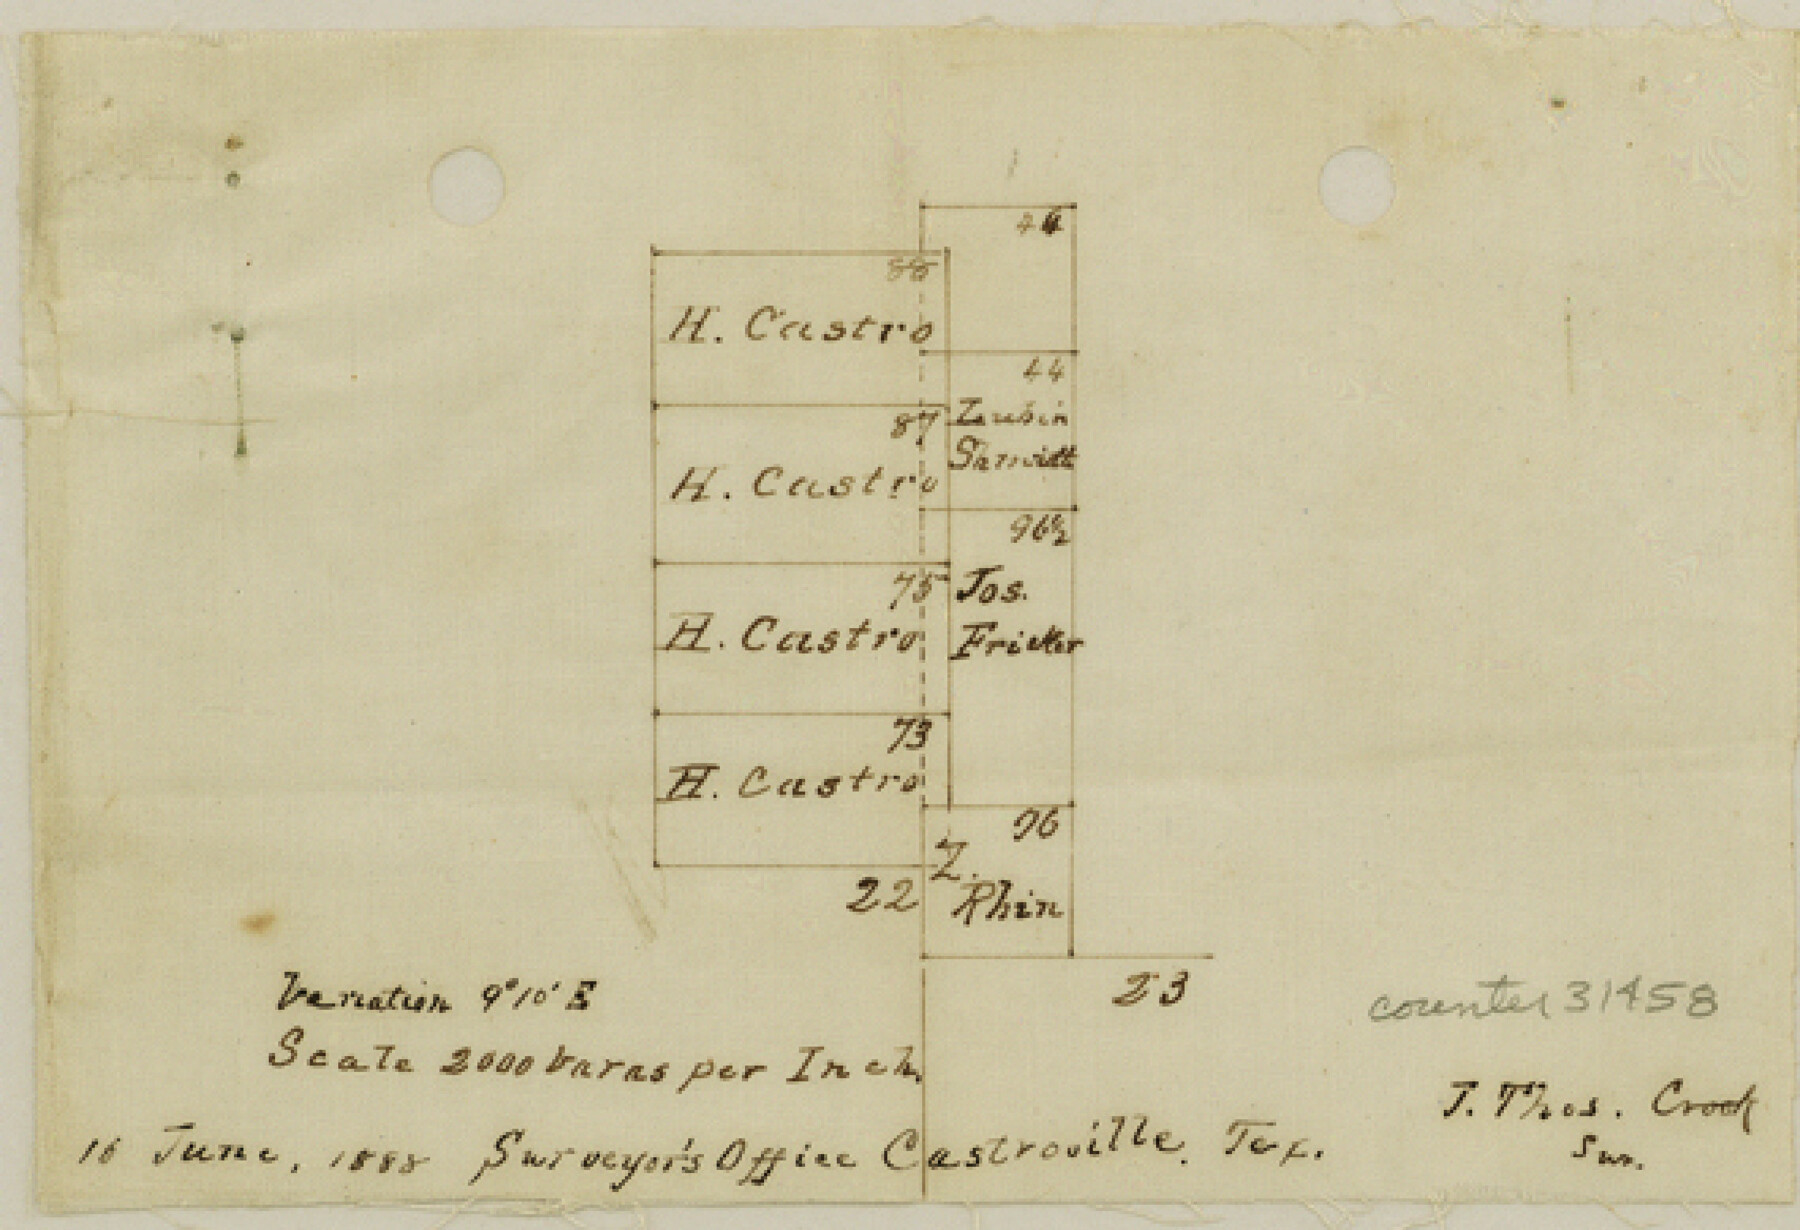 88
H. Castro
87
H. Castro
75
H. Castro
73
H. Castro
22
44
96½
Jos.
Fricker
96
Z.
Rhin
23
Variation 9°10' E
Scale 2000 Varas per Inch.
16 June, 1888 Surveyor's Office Castroville, Tex.
counter 31458
J. Thos. Crook
Sur.